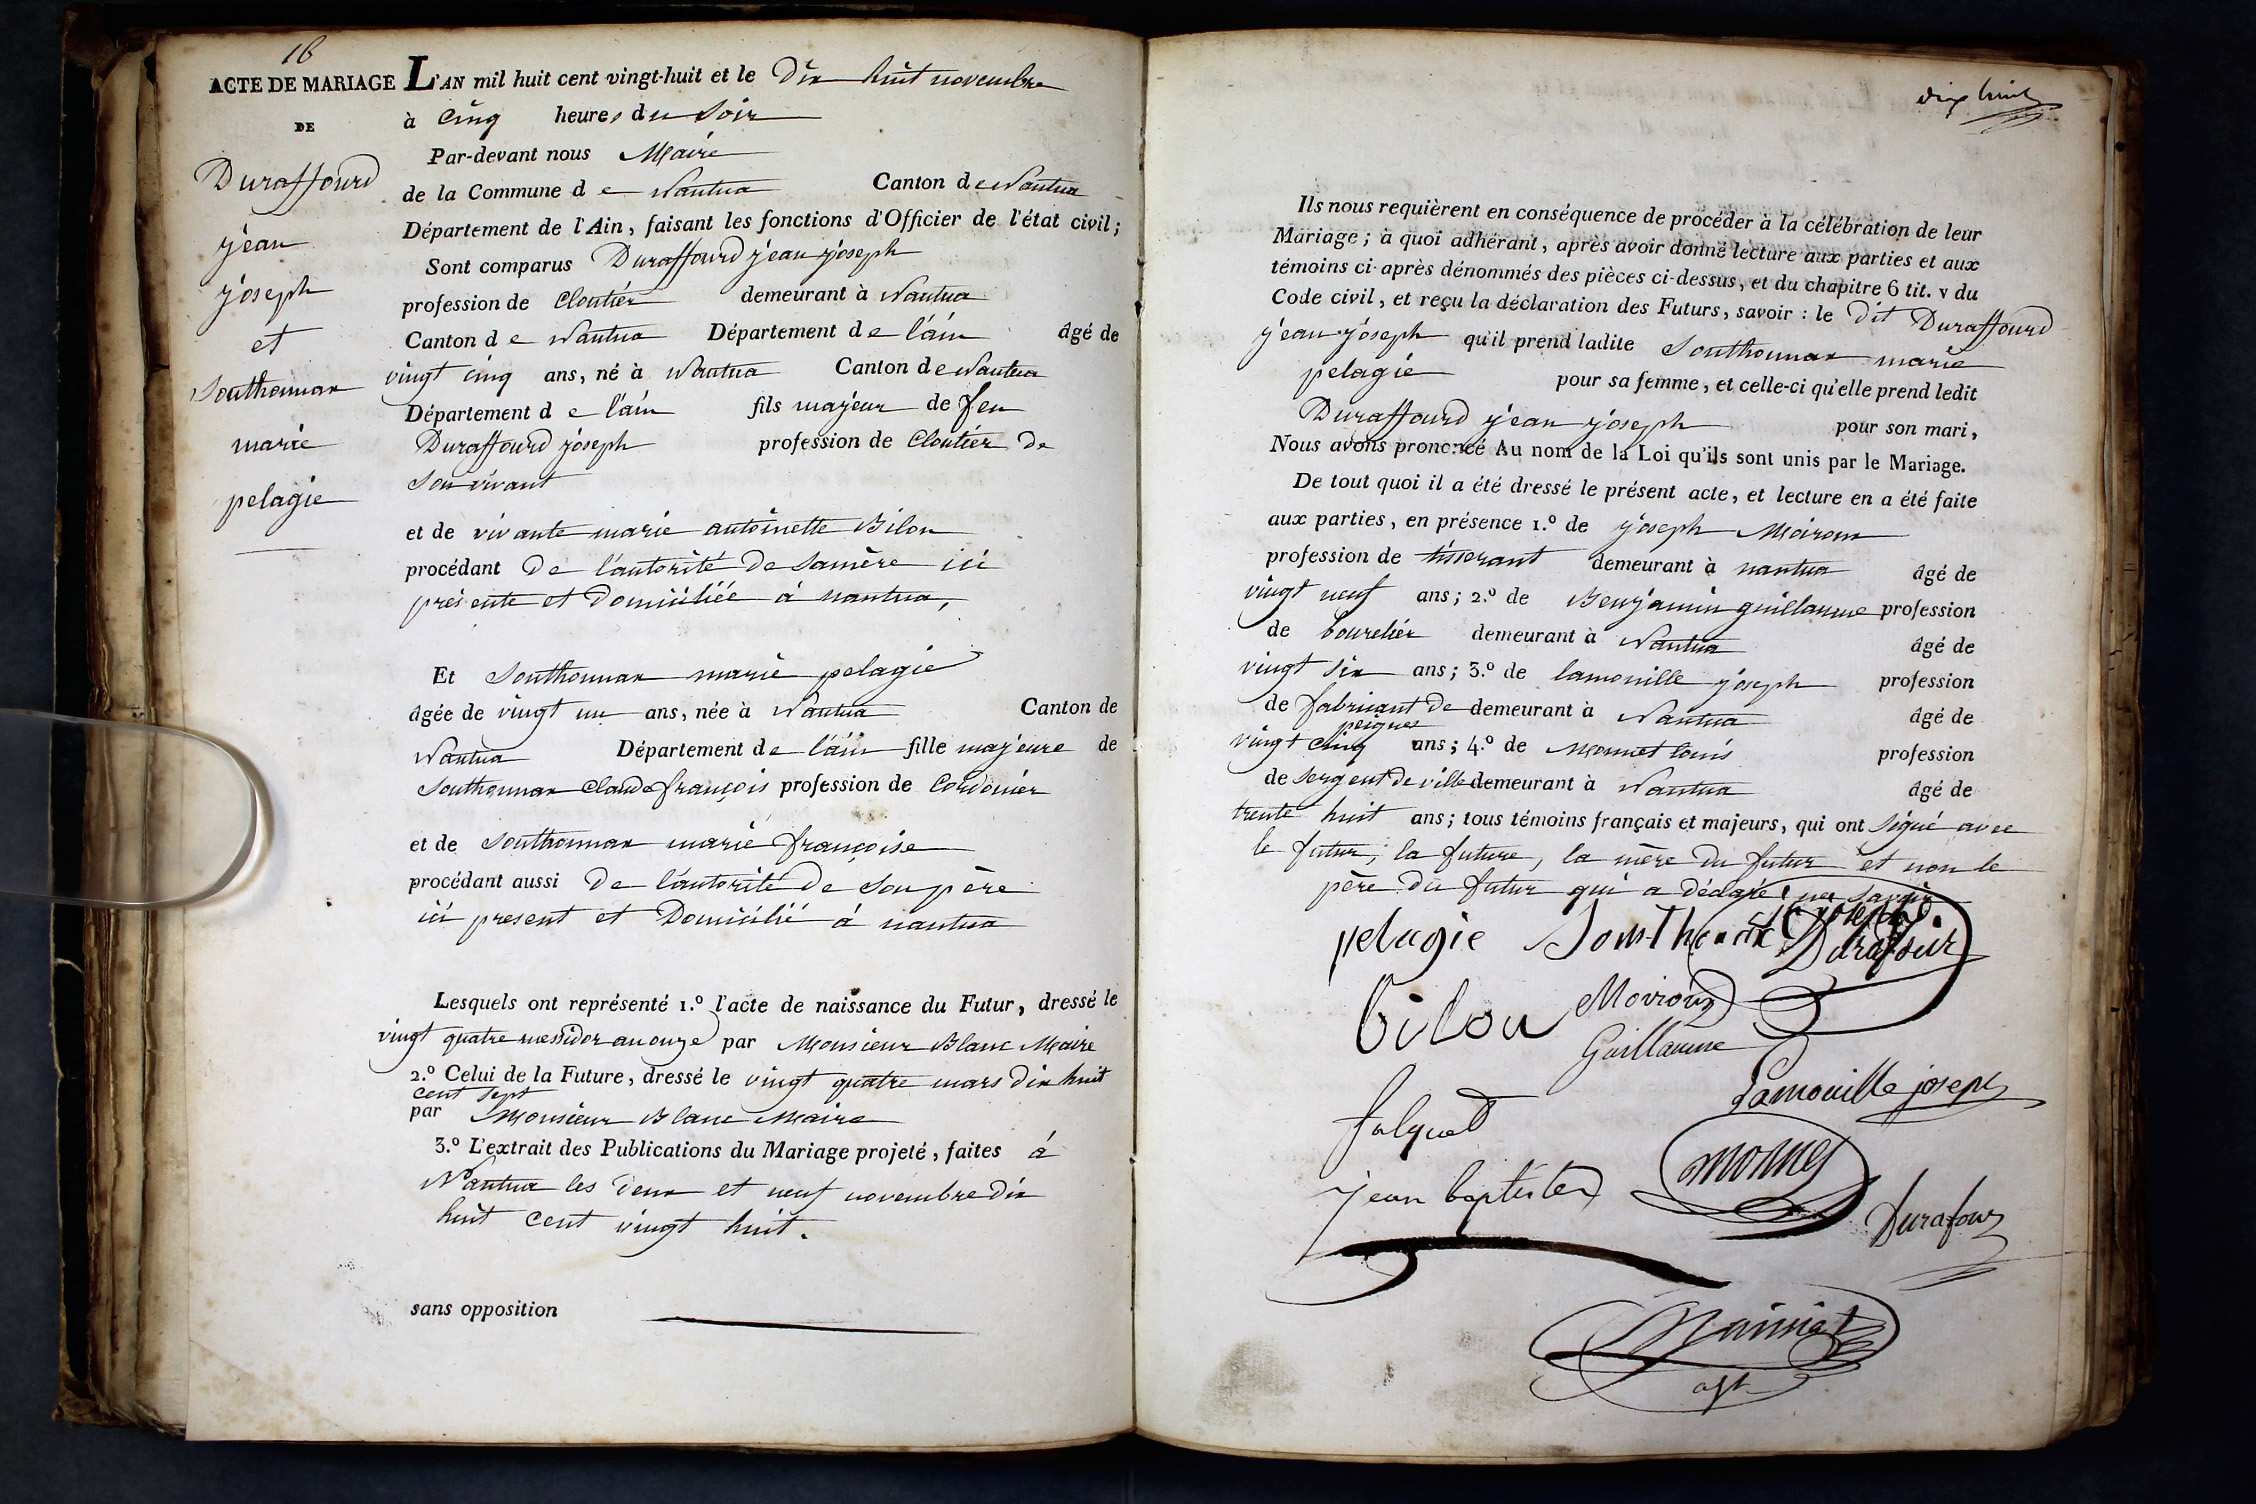 16
ACTE DE MARIAGE L'AN mil huit cent vingt-huit et le Dix huit novembre
DE
à Cinq heures du Soir
Par-devant nous Maire
de la Commune de Nantua Canton de Nantua
Département de l'Ain, faisant les fonctions d'Officier de l'état civil;
Sont comparus Duraffourd jean joseph
profession de Cloutier demeurant à Nantua
Canton de Nantua Département de l'ain âgé de
vingt cinq ans, né à Nantua Canton de Nantua
Département de l'ain fils majeur de feu
Duraffourd joseph profession de Cloutier de
Son vivant
et de vivante marie antoinette Bilon
procédant De l'autorité De Samère ici
présente et Domiciliée à nantua,
Duraffourd
jean
joseph
et
Southonnax
marie
pelagie
Et Southonnax marie pelagie
âgée de vingt un ans, née à Nantua Canton de
Nantua Département de l'ain fille majeure de
Southonnax Claude françois profession de Cordonier
et de Southonnax marie françoise
procédant aussi De l'autorité De Son père
ici present et Domicilié à nantua
Lesquels ont représenté 1.º l'acte de naissance du Futur, dressé le
vingt quatre messidor an onze par Monsieur Blanc Maire
2.º Celui de la Future, dressé le vingt quatre mars dix huit
cent sept
par Monsieur Blanc Maire
3.º L'extrait des Publications du Mariage projeté, faites à
Nantua les Deux et neuf novembre Dix
huit cent vingt huit.
sans opposition
dix huit
Ils nous requièrent en conséquence de procéder à la célébration de leur
Mariage; à quoi adhérant, après avoir donné lecture aux parties et aux
témoins ci-après dénommés des pièces ci-dessus, et du chapitre 6 tit. v du
Code civil, et reçu la déclaration des Futurs, savoir: le dit Duraffourd
jean joseph qu'il prend ladite Southonnax marie
pelagie pour sa femme, et celle-ci qu'elle prend ledit
Duraffourd jean joseph pour son mari,
Nous avons prononcé Au nom de la Loi qu'ils sont unis par le Mariage.
De tout quoi il a été dressé le présent acte, et lecture en a été faite
aux parties, en présence 1.º de joseph Moiroux
profession de tisserant demeurant à nantua âgé de
vingt neuf ans; 2.º de Benjamin guillaume profession
de bourelier demeurant à Nantua âgé de
vingt Six ans; 3.º de lamouille joseph profession
de fabricant De demeurant à Nantua âgé de
peignes
vingt cinq ans; 4.º de Monnet louis profession
de Sergent De ville demeurant à Nantua âgé de
trente huit ans; tous témoins français et majeurs, qui ont Signé avec
le futur, la future, la mère Du futur et non le
père du futur qui a Déclaré ne Savoir
pelagie Southonax joseph Durafour
bilon Moiroux
Guillaume
Lamouille joseph
falquet
jean baptiste
monnet
Durafour